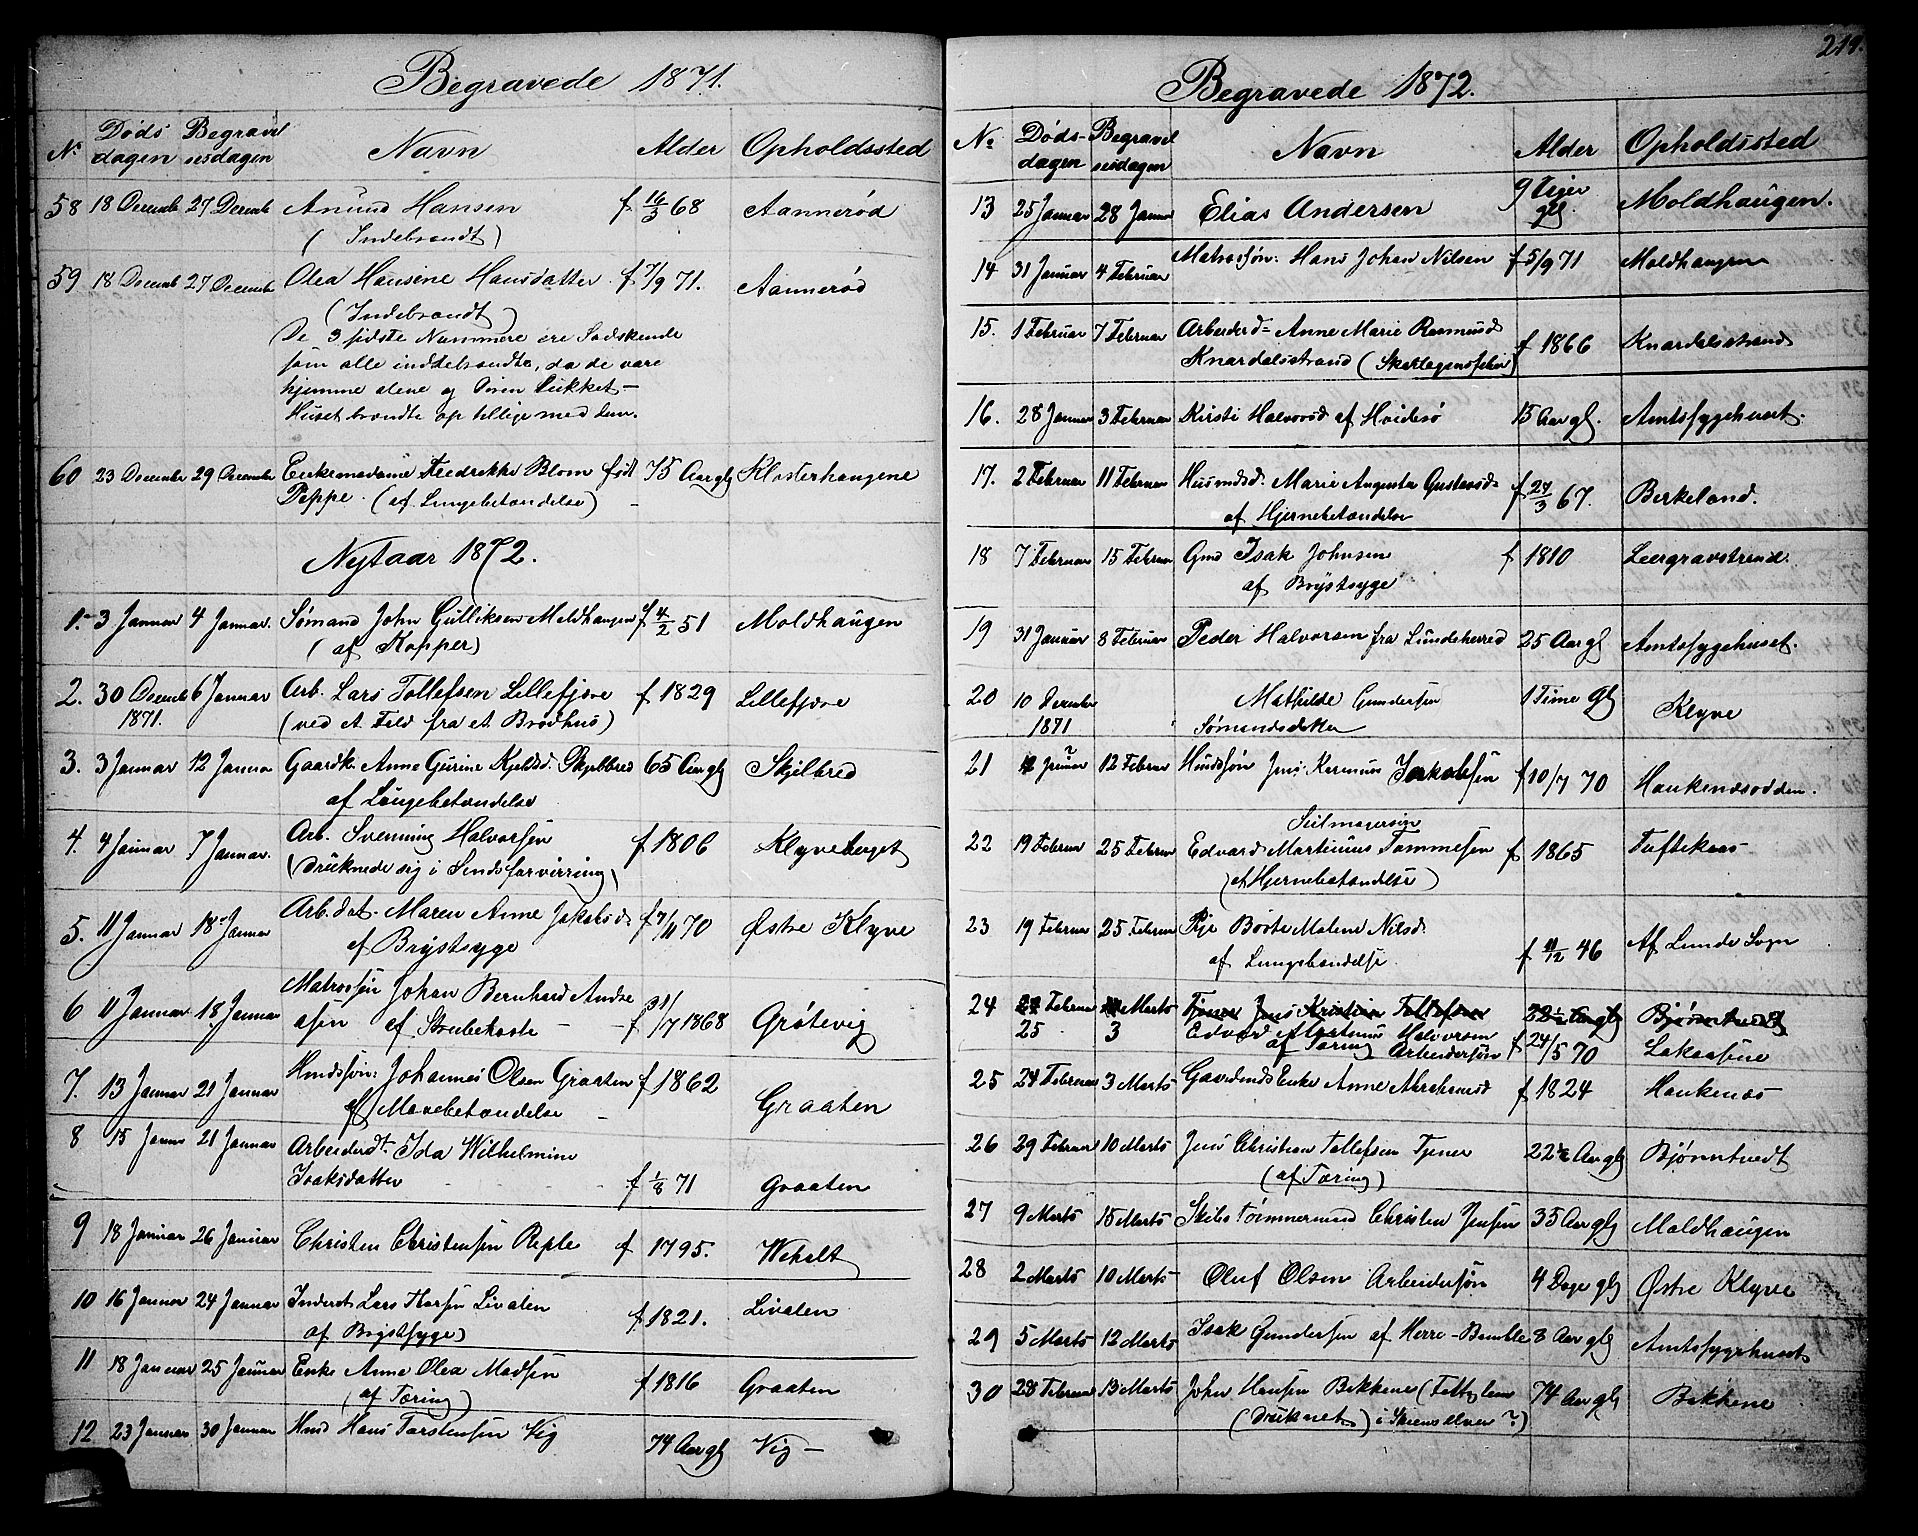 Begravede 1871.
No Dødsdagen Begravelsesdagen Navn Alder Opholdssted
58 18 Decemb 27 Decemb Anund Hansen f 16/3 68 Aannerød
(Indebrændt)
59 18 Decemb 27 Decemb Olea Hansine Hansdatter f 7/9 71. Aannerød
(Indebrændt)
De 3 sidste Nummere ere Sødskende
som alle indebrændte, da de vare
hjemme alene og Døren lukket –
Huset brændte op tillige med dem.
60 23 December 29 December Enkemadame Fredrikke Blom født 75 Aar gl Klosterhaugene
Peppe (af Lungebetændelse)
Nytaar 1872.
1. 3 Januar 4 Januar. Sømand John Gulliksen Moldhaugen f 4/2 51 Moldhaugen
(af Kopper)
2. 30 Decemb 6 Januar Arb. Lars Tollefsen Lillefjære f 1829 Lillefjære
1871. (ved et Fald fra et Brødhus)
3. 3 Januar 12 Januar Gaardk. Anne Gurine Kjeldsd. Skjelbred 65 Aar gl Skilbred
af Lungebetændelse
4. 4 Januar 7 Januar. Arb. Svenning Halvorsen f 1806 Klyveberget
(druknede sig i Sindsforvirring)
5. 11 Januar 18 Januar Arb. dat. Maren Anne Jakobsd. f 7/11 70 Østre Klyve
af Brystsyge
6 11 Januar 18 Januar Matrossøn Johan Bernhard Andre
asen af Strubehoste – f 31/7 1868 Grøtevig
7. 13 Januar 21 Januar Hmdssøn: Johannes Olsen Graaten f 1862 Graaten
af Mavebetændelse
8 15 Januar 21 Januar Arbeiderdt. Ida Wilhelmine
Isaksdatter f 1/8 71 Graaten
9 18 Januar 26 Januar Christen Christensen Røple f 1795. Weholt
10 16 Januar 24 Januar Inderst Lars Larsen Livalen f. 1821. Livalen
af Brystsyge)
11 18 Januar 25 Januar Enke Anne Olea Madsen f 1816 Graaten
(af Tæring)
12 23 Januar 30 Januar Hmd Hans Torstensen Vig 74 Aar gl Vig –
219.
Begravede 1872.
No Dødsdagen Begravelsesdagen Navn Alder Opholdssted
13 25 Januar 28 Januar Elias Andersen 9 Uger gl. Moldhaugen.
14 31 Januar 4 Februar Matrossøn: Hans Johan Nilsen f 5/9 71 Moldhaugen
15. 1 Februar 7 Februar Arbeiderd= Anne Marie Rasmusd
Knardalsstrand (Skarlagensfeber) f 1866 Knardalsstrand
16. 28 Januar 3 Februar Kirsti Halvorsd af Hvidesø 15 Aar gl. Amtssygehuset.
17. 2 Februar 11 Februar Husmdsd. Marie Augusta Gustavsd= f 24/3 67. Berkeland.
af Hjernebetændelse
18 7 Februar 15 Februar Gmd Isak Johnsen f 1810 Leergravstrand.
af Brystsyge
19 31 Januar 8 Februar Peder Halvorsen fra Lundeherred 25 Aar gl Amtssygehuset.
20 10 December Mathilde Gundersen 1 Time Gl Klyve
1871 Sømandsdatter
21 12 Januar ? 12 Februar Hmdssøn Jens Rasmus Jakobsen f 10/7 70 Haukenæsodden.
Seilmagersøn
22 19 Februar 25 Februar Edvard Martinius Tommesen f 1865 Tuftekaas
(af Hjernebetændelse)
23 19 Februar 25 Februar Pige Børte Malene Nilsd.
af Lungebetændelse. f 11/12 46 Af Lunde Sogn
24 Februar Marts Tjener Jens Kristian Tollefsen 22 1/2 Aar gl Bjørntvedt
25 3 Edvard Martinus Halvorsen f 24/5 70 Lakaasene
af Tæring Arbeidersøn
25 24 Februar 3 Marts Gaardmds Enke Anne Abrahamsd f 1824 Haukenæs
26 29 Februar 10 Marts Jens Christian Tollefsen Tjener 22 1/2 Aar gl Bjørntvedt
(af Tæring)
27 9 Marts 15 Marts Skibstømmermand Christen Jensen 35 Aar gl Moldhaugen
28 2 Marts 10 Marts Oluf Olsen Arbeidersøn 4 Dage gl Østre Klyve
29 5 Marts 12 Marts Isak Gundersen af Herre – Bamble 8 Aar gl Amtssygehuset
30 28 Februar 13 Marts John Hansen Bekkene (Fattiglem 74 Aar gl Bekkene
(Druknet) i Skienselven ?)